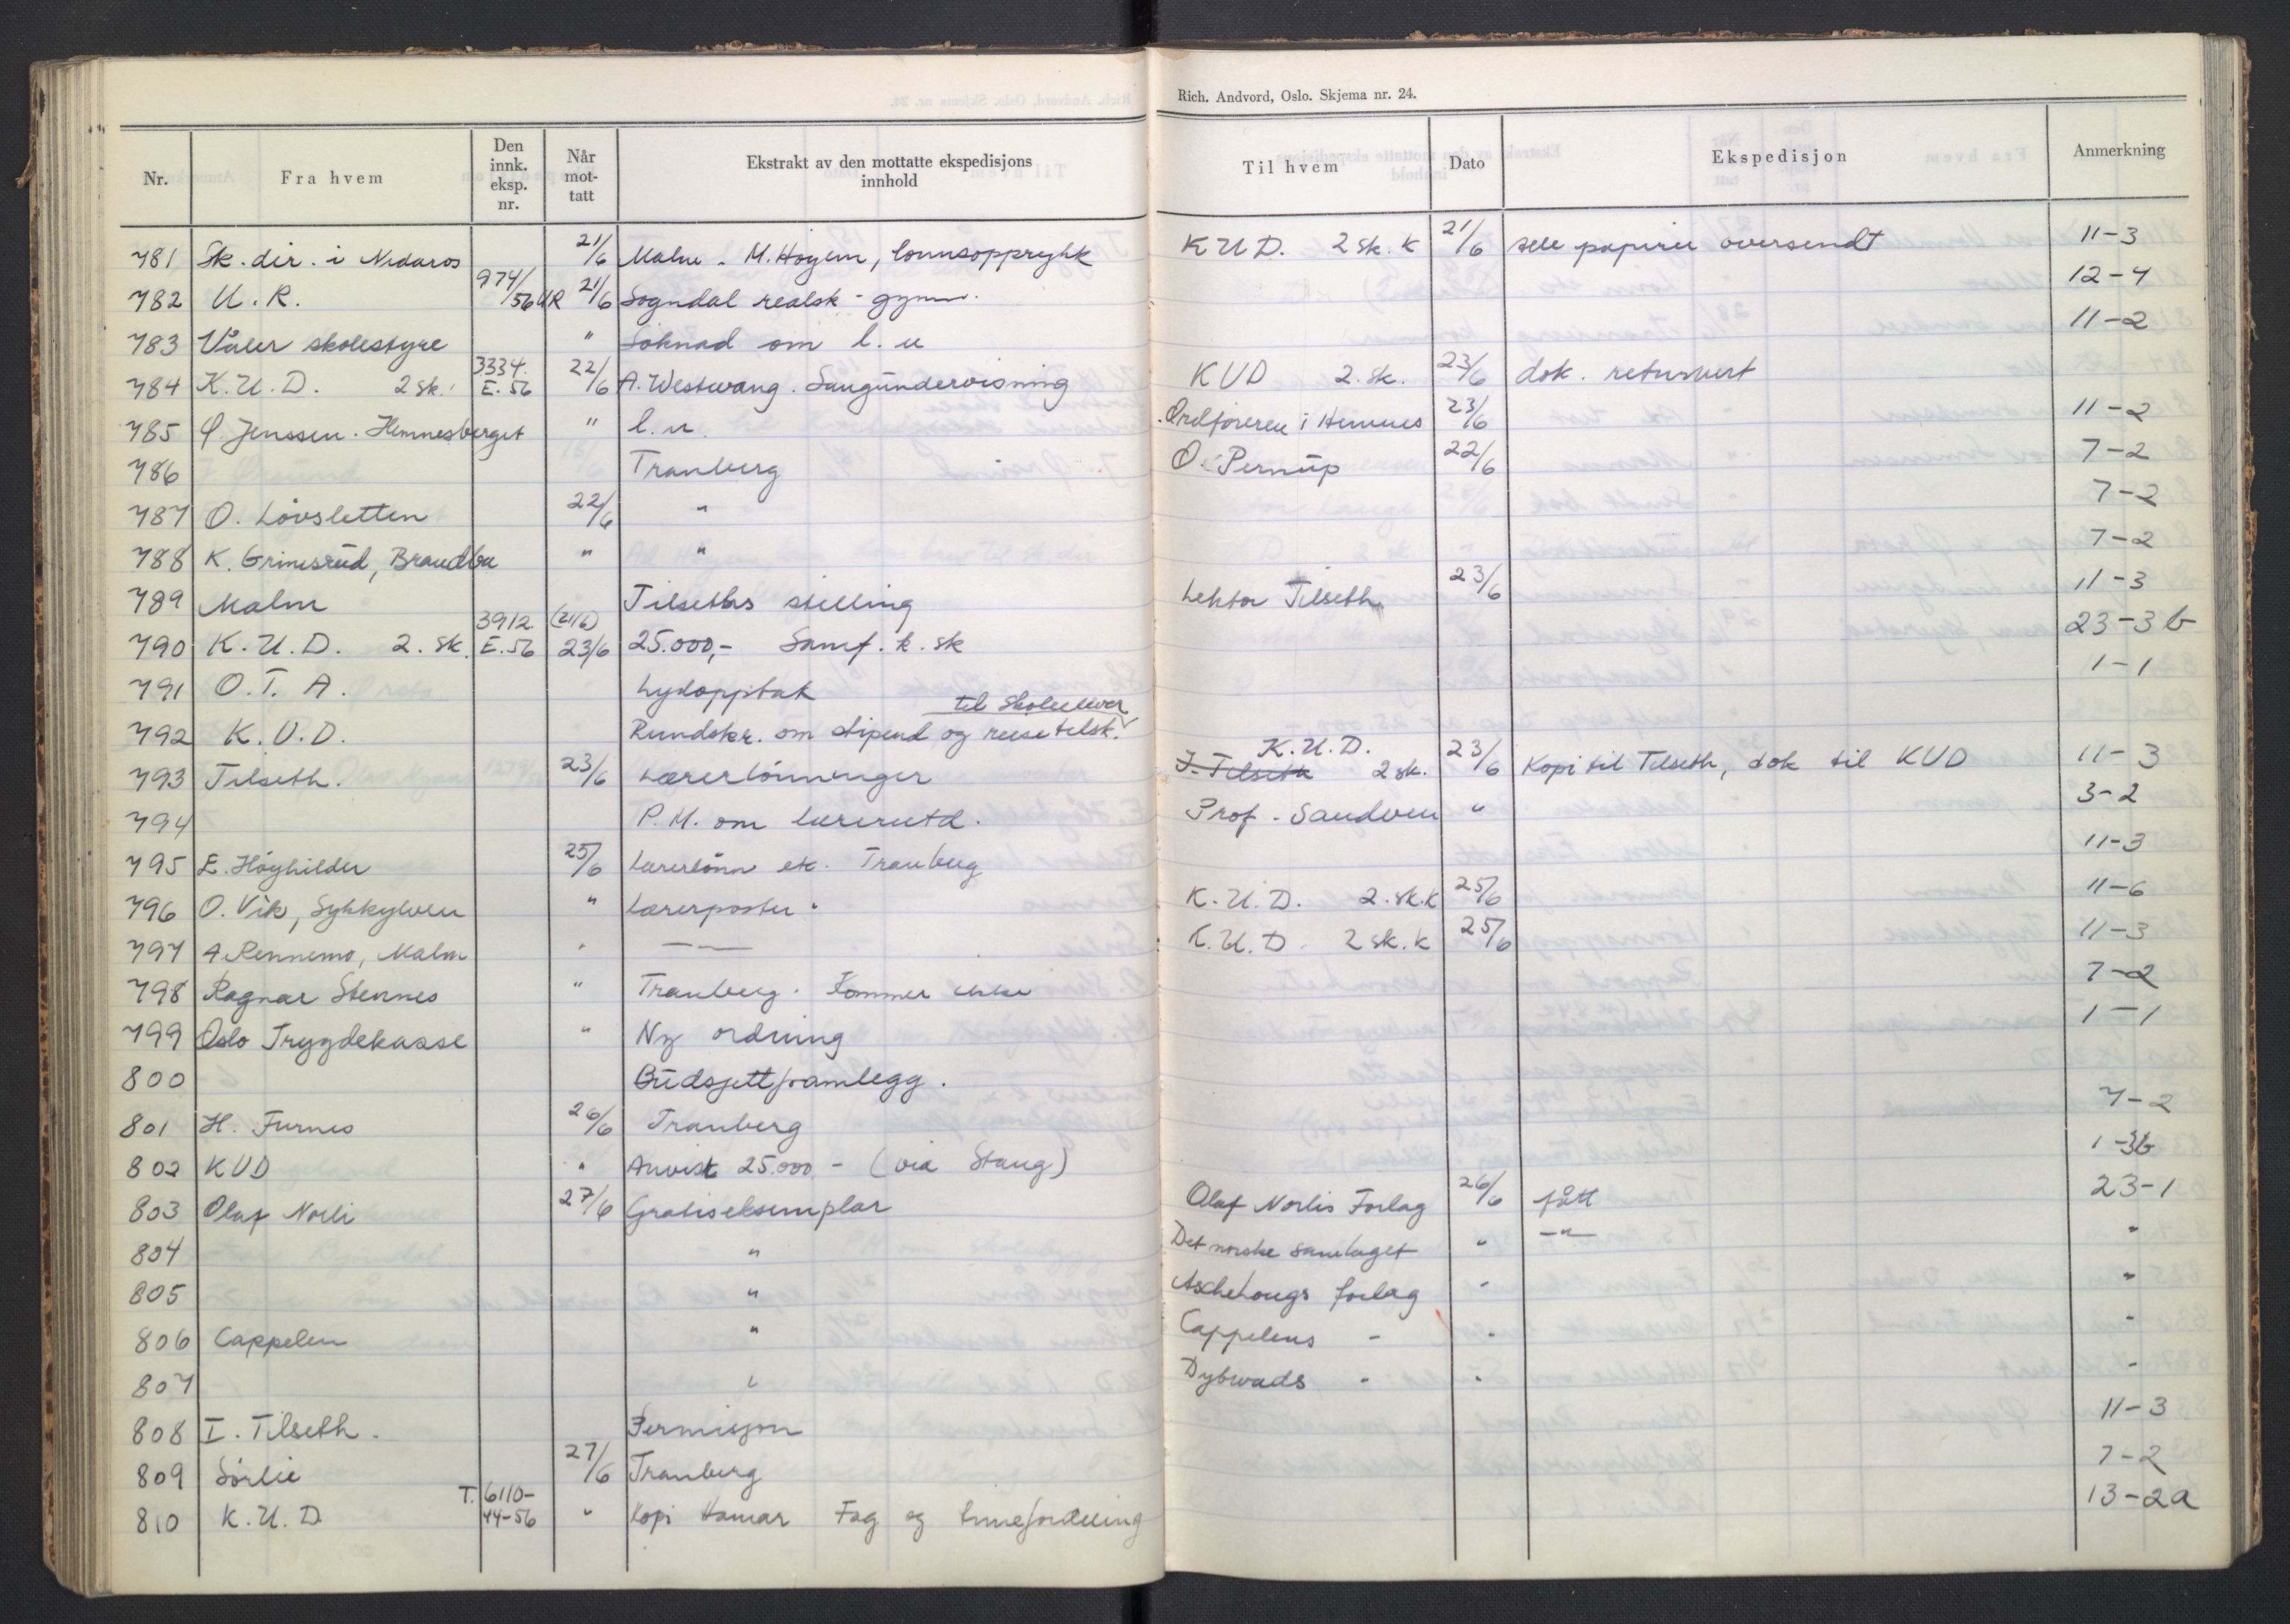 Rich. Andvord, Oslo. Skjema nr. 24.
Nr. Fra hvem Den innk. eksp. nr. Når mot-tatt Ekstrakt av den mottatte ekspedisjons innhold Til hvem Dato Ekspedisjon Anmerkning
781 Sk. dir. i Nidaros 21/6 Malm - M. Høyem, lønnsopprykk K U D. 2 sk. k 21/6 papirer oversendt 11-3
782 U. R. 974/56 UR 21/6 Sogndal realsk - gymn. 12-4
783 Våler skolestyre " Søknad om l. u 11-2
784 K. U. D. 2 sk. 3334. E. 56 22/6 A. Westwang. Sangundervisning KUD 2. sk. 23/6 dok. returnert
785 Ø. Jenssen. Hemnesberget " l. u. Ordføreren i Hemnes 23/6 11-2
786 Tranberg O. Pernup 22/6 7-2
787 O. Løvsletten 22/6 " 7-2
788 K. Grinisrud, Brandbu " " 7-2
789 Malm Tilseths stilling Lektor Tilseth 23/6 11-3
790 K. U. D. 2. sk. 3912. E. 56 (21/6) 23/6 25.000,- Samf. k. sk 23-3 b
791 O. T. A. Lydopptak 1-1
792 K. U. D. Rundskr. om stipend og reisetilsk. til skoleelever
793 Tilseth. 23/6 Lærerlønninger I. Tilseth K. U. D. 2 sk. 23/6 Kopi til Tilseth, dok til KUD 11-3
794 P. M. om lærerutd. Prof. Sandven " 3-2
795 E. Høyhilder 25/6 Lærerlønn etc. Tranberg 11-3
796 O. Vik, Sykkylven " Lærerposter. K. U. D. 2. sk. k 25/6 11-6
797 A. Rennemo, Malm " —"— K. U. D. 2 sk. k 25/6 11-3
798 Ragnar Stennes " Tranberg. Kommer ikke 7-2
799 Oslo Trygdekasse " Ny ordning 1-1
800 Budsjettframlegg.
801 H. Furnes 26/6 Tranberg 7-2
802 KUD " Anvist 25.000 - (via Stang) 1-3b
803 Olaf Norli 27/6 Gratiseksemplar Olaf Norlis Forlag 26/6 fått 23-1
804 " Det norske samlaget " —"— "
805 " Aschehougs forlag " "
806 Cappelen " Cappelens - " "
807 " Dybwads - " "
808 I. Tilseth. Permisjon 11-3
809 Sørlie 27/6 Tranberg 7-2
810 K. U. D T. 6110-44-56 " Kopi Hamar Fag og timefordeling 13-2a